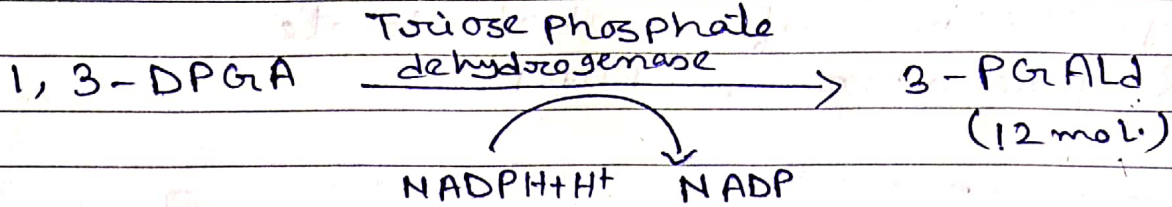 Triose phosphate
dehydrogenase
1, 3-DPGA 3-PGALd
(12 mol.)
NADPH+H+ NADP